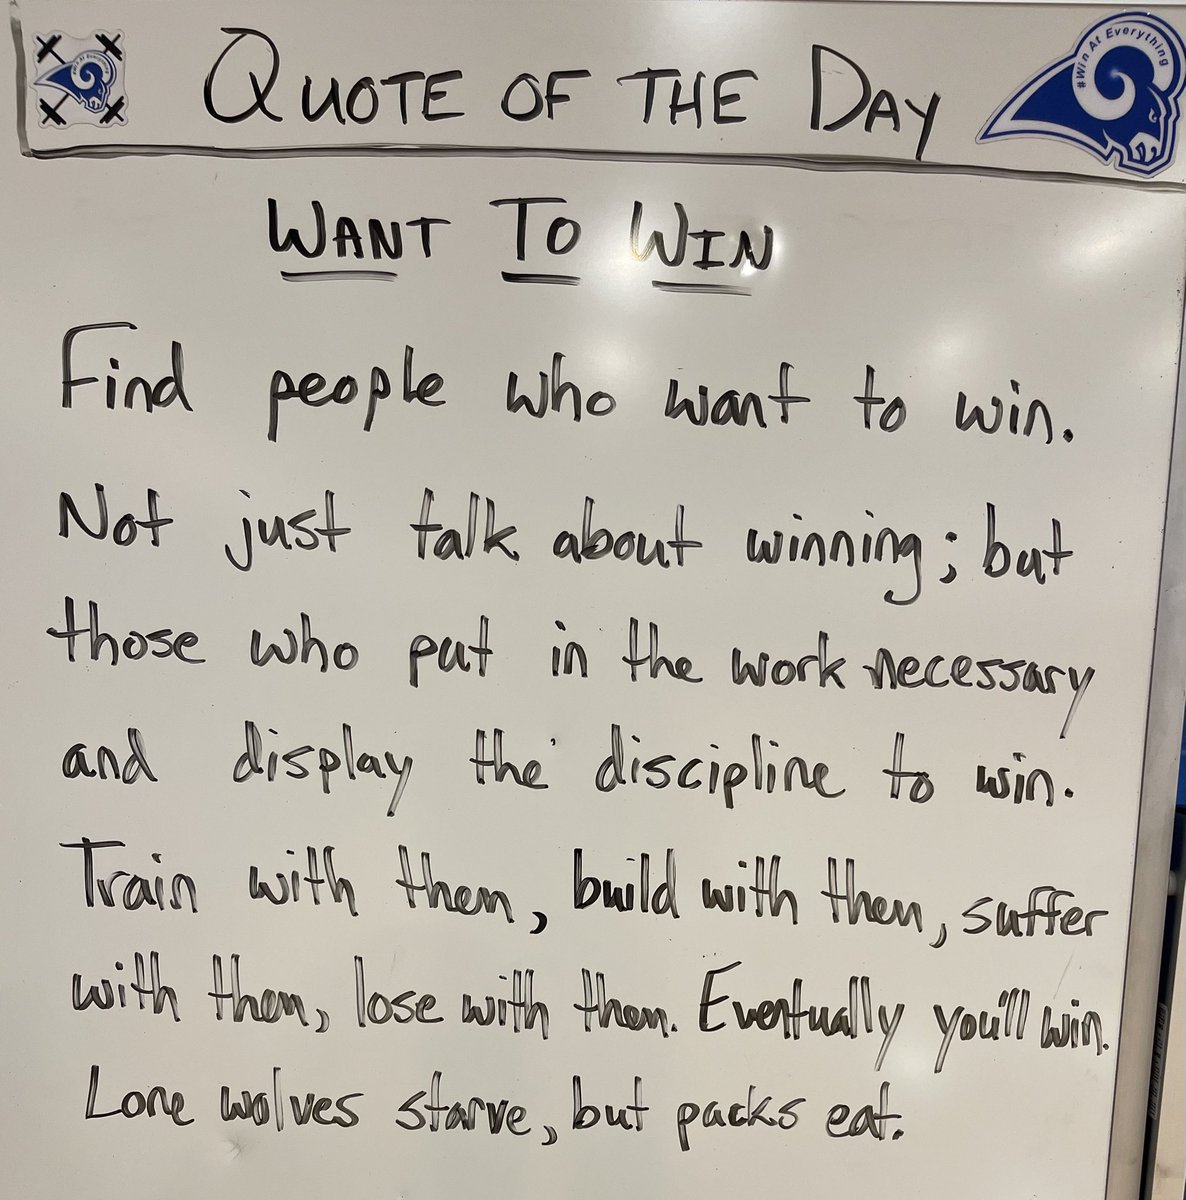 QUOTE OF THE DAY
#Win At Everything
WANT TO WIN
Find people who want to win.
Not just talk about winning; but
those who put in the work necessary
and display the discipline to win.
Train with them, build with them, suffer
with them, lose with them. Eventually you'll win.
Lone wolves starve, but packs eat.